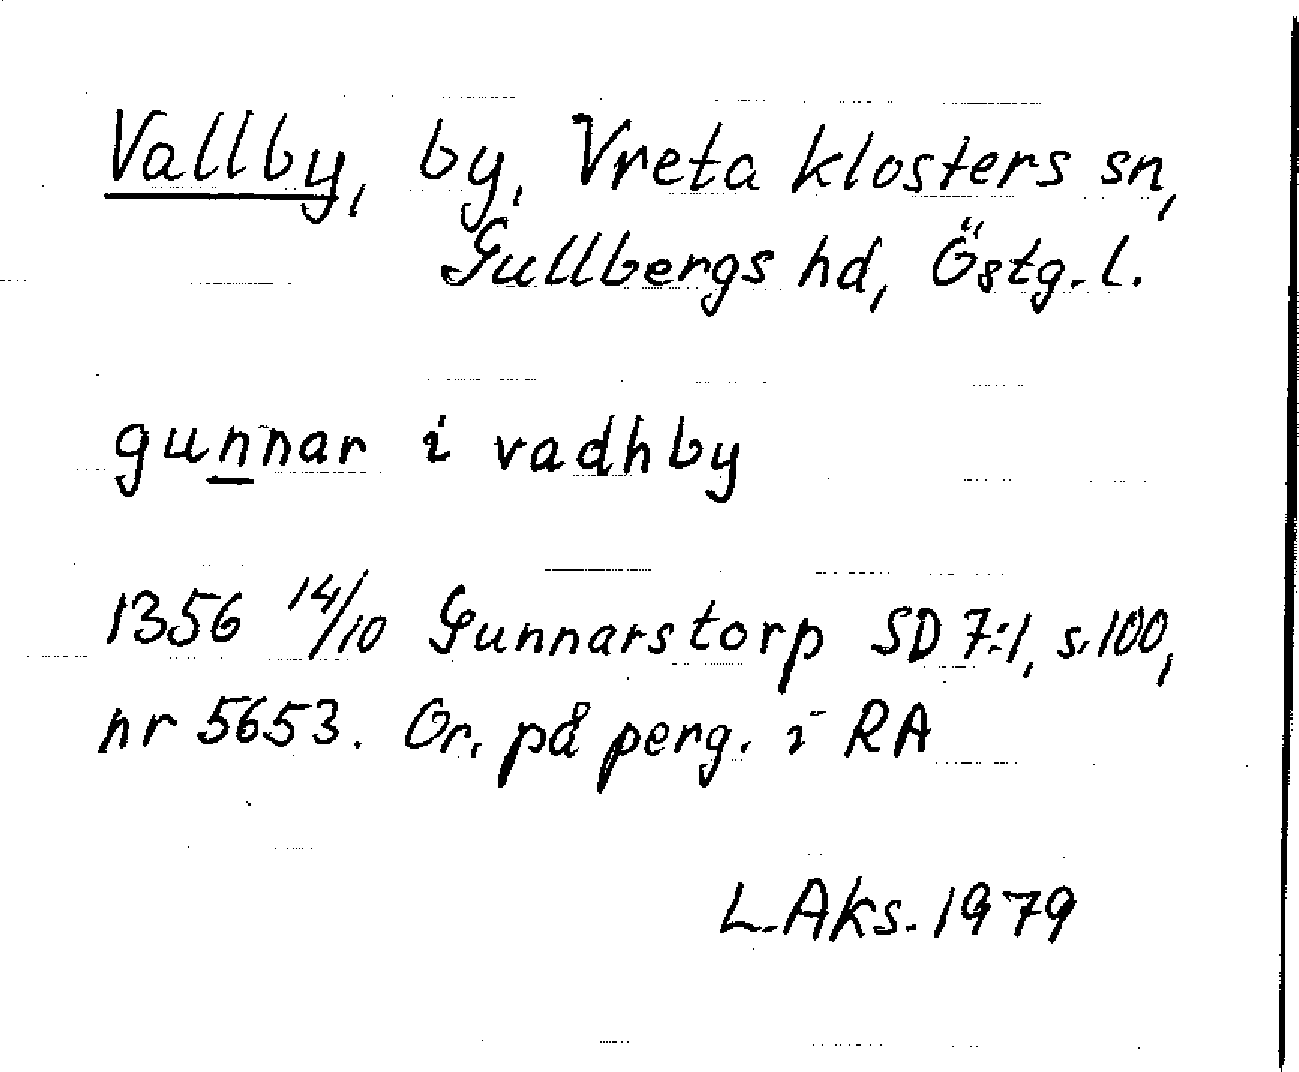 Vallby, by, Vreta klosters sn,
Gullbergs hd, Östg. l.
gunnar i vadhby
1356 14/10 Gunnarstorp SD 7:1, s. 100,
nr 5653. Or. på perg. i RA
L. Aks. 1979